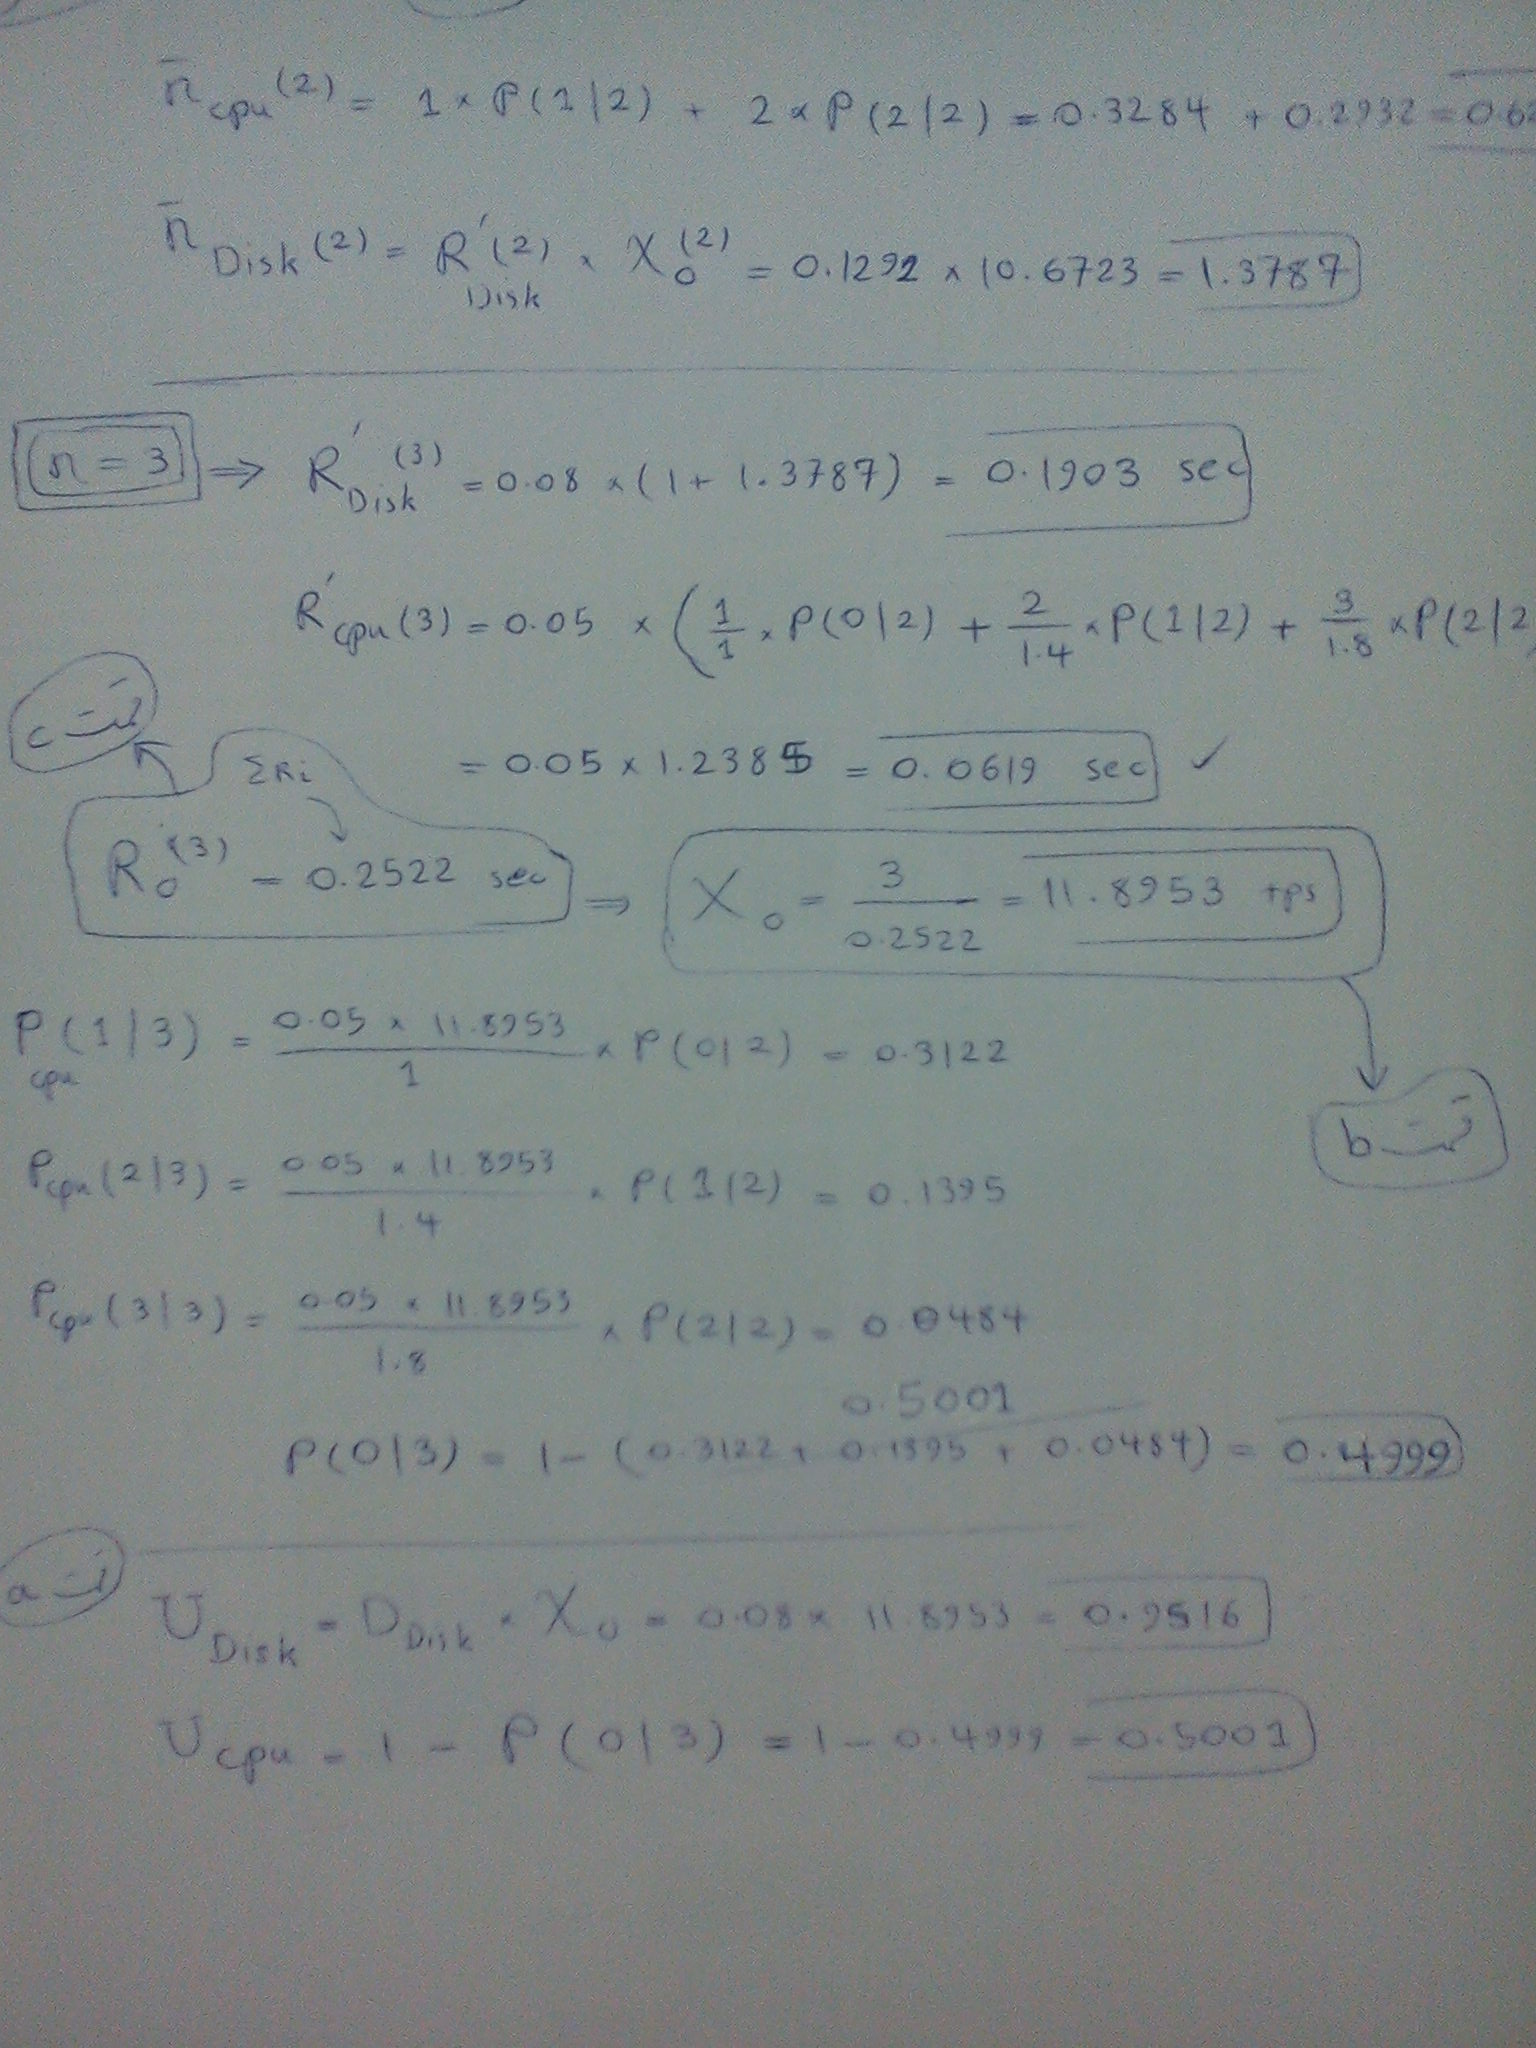 n̄cpu(2) = 1 × P(1|2) + 2 × P(2|2) = 0.3284 + 0.2932 = 0.62
n̄Disk(2) = R'Disk(2) × X₀(2) = 0.1292 × 10.6723 = 1.3787
n = 3 ⇒ R'Disk(3) = 0.08 × (1 + 1.3787) = 0.1903 sec
R'cpu(3) = 0.05 × (1/1 × P(0|2) + 2/1.4 × P(1|2) + 3/1.8 × P(2|2)
قسمت c
ΣRi
= 0.05 × 1.2385 = 0.0619 sec ✓
R₀(3) = 0.2522 sec ⇒ X₀ = 3/0.2522 = 11.8953 tps
Pcpu(1|3) = 0.05 × 11.8953 / 1 × P(0|2) = 0.3122
قسمت b
Pcpu(2|3) = 0.05 × 11.8953 / 1.4 × P(1|2) = 0.1395
Pcpu(3|3) = 0.05 × 11.8953 / 1.8 × P(2|2) = 0.0484
0.5001
P(0|3) = 1 - (0.3122 + 0.1395 + 0.0484) = 0.4999
قسمت a
UDisk = DDisk × X₀ = 0.08 × 11.8953 = 0.9516
Ucpu = 1 - P(0|3) = 1 - 0.4999 = 0.5001